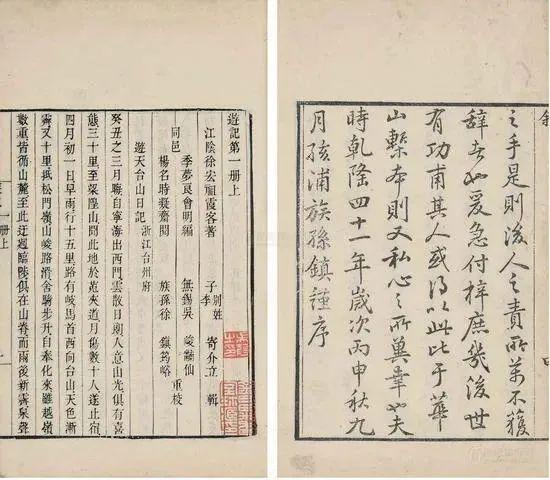 之手是則後人之責所萬不獲
辭者也爰急付梓庶幾後世
有功甫其人或得以此比于華
山槧本則又私心之所冀幸也夫
時乾隆四十一年歲次丙申秋九
月孩浦族孫鎮謹序
遊記第一冊上
江陰徐宏祖霞客著 子李別姓寄介立輯
同邑 季夢良會明編 無錫吳峻黼仙重校
楊名時凝齋閱 族孫徐鎮筠峪
遊天台山日記浙江台州府
癸丑之三月晦自寧海出西門雲散日朗人意山光俱有喜
態三十里至梁隍山聞此地於菟夾道月傷數十人遂止宿
四月初一日早雨行十五里路有岐馬首西向台山天色漸
霽又十里抵松門嶺山峻路滑舍騎步行自奉化來雖越嶺
數重皆循山麓至此迂迴臨陟俱在山脊而雨後新霽泉聲